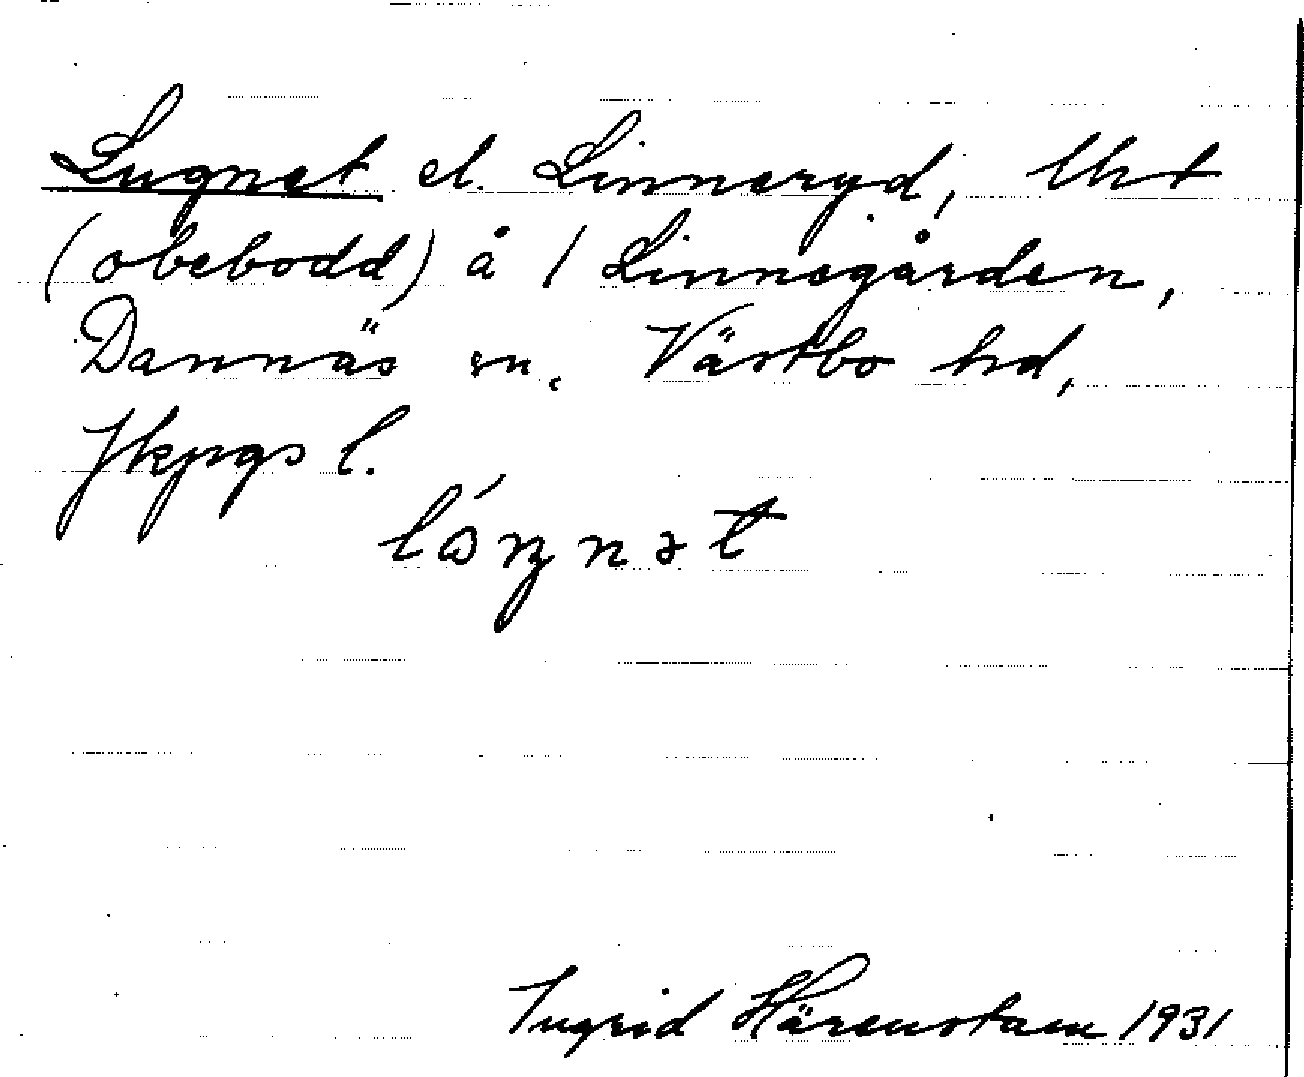 Lugnet el. Linneryd, lht
(obebodd) å 1 Linnegården,
Dannäs sn. Västbo hd,
Jkpgs l.
Ingrid Härenstam 1931